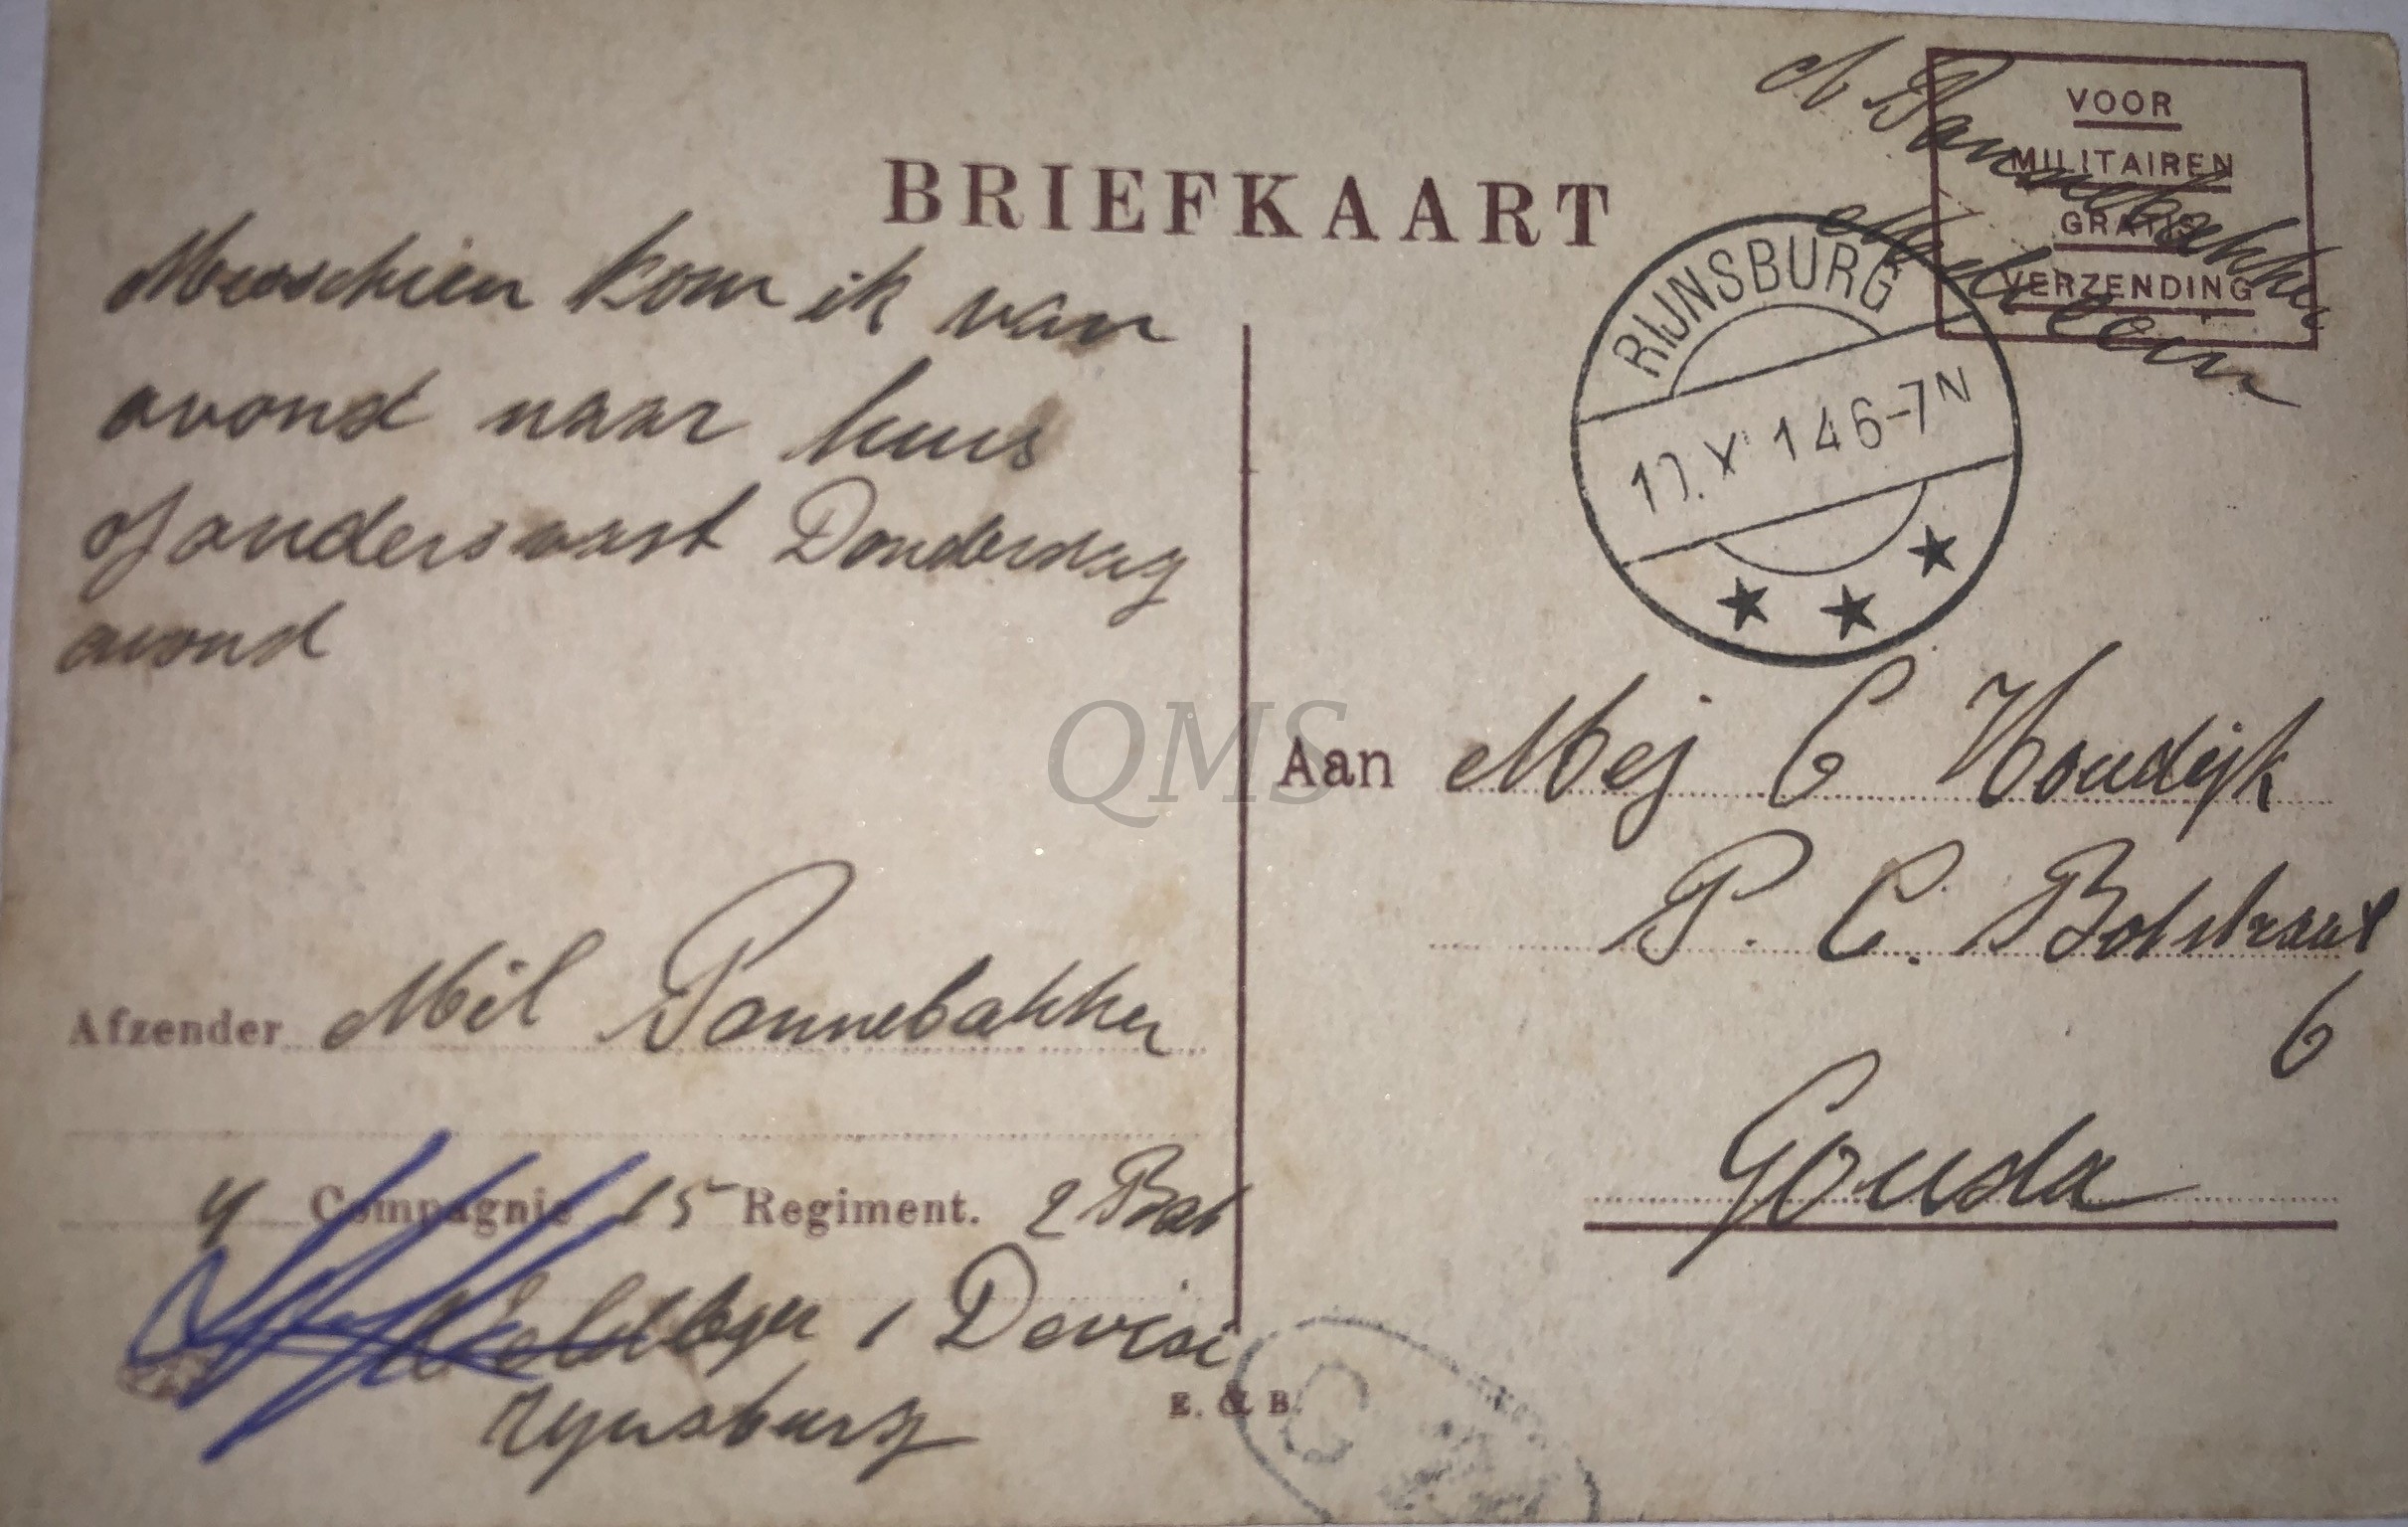 BRIEFKAART
VOOR
MILITAIREN
GRATIS
VERZENDING
A Pannebakker
RIJNSBURG
1 X 14 6-7N
Messchien kom ik van
avond naar huis
of anders vast Donderdag
avond
QMS
Aan Mej C Houdijk
P. C. Botstraat
6
Gouda
Afzender Mil Pannebakker
4 Compagnie 15 Regiment. 2 Bat
Veldleger 1 Devisi
Rynsburg
E. & B.